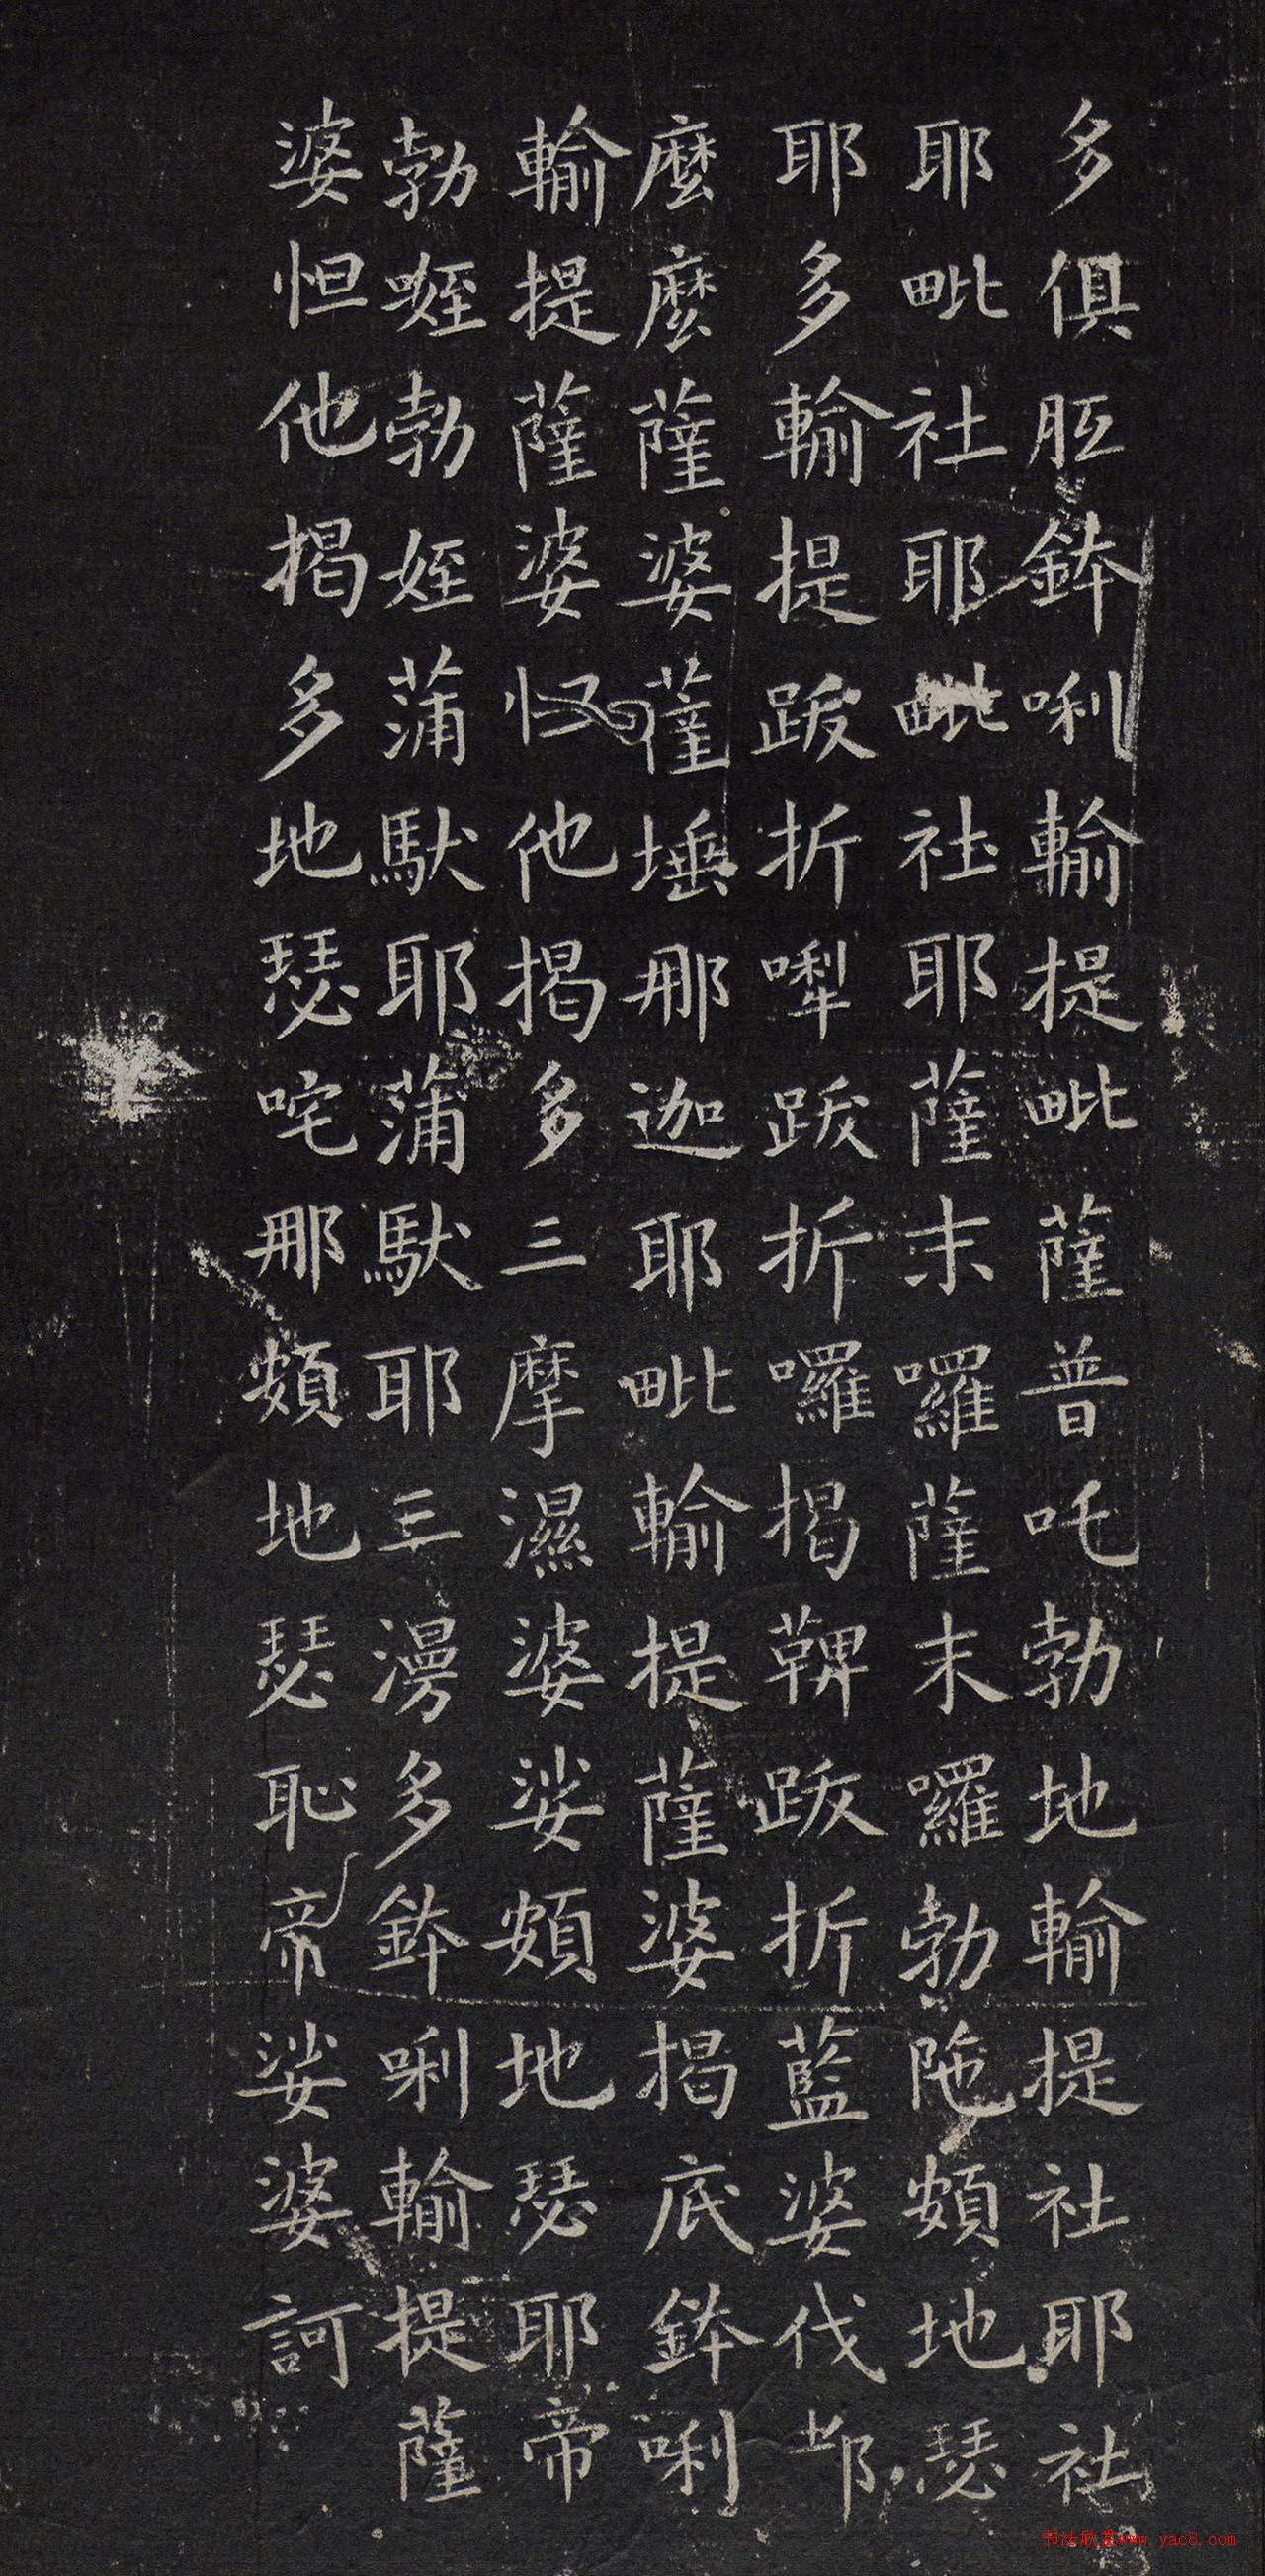 多俱胝鉢唎輸提毗薩普吒勃地輸提社耶社
耶毗社耶毗社耶薩末囉薩末囉勃陁頞地瑟
耶多輸提跋折㘑跋折囉揭鞞跋折藍婆伐
麼麼薩婆薩埵那迦耶毗輸提薩婆揭底鉢唎
輸提薩婆怛他揭多三摩濕婆娑頞地瑟耶帝
勃𠹌勃姪蒲馱耶蒲馱耶三漫多鉢唎輸提薩
婆怛他揭多地瑟咤那頞地瑟恥帝娑婆訶
书法欣赏www.yac8.com